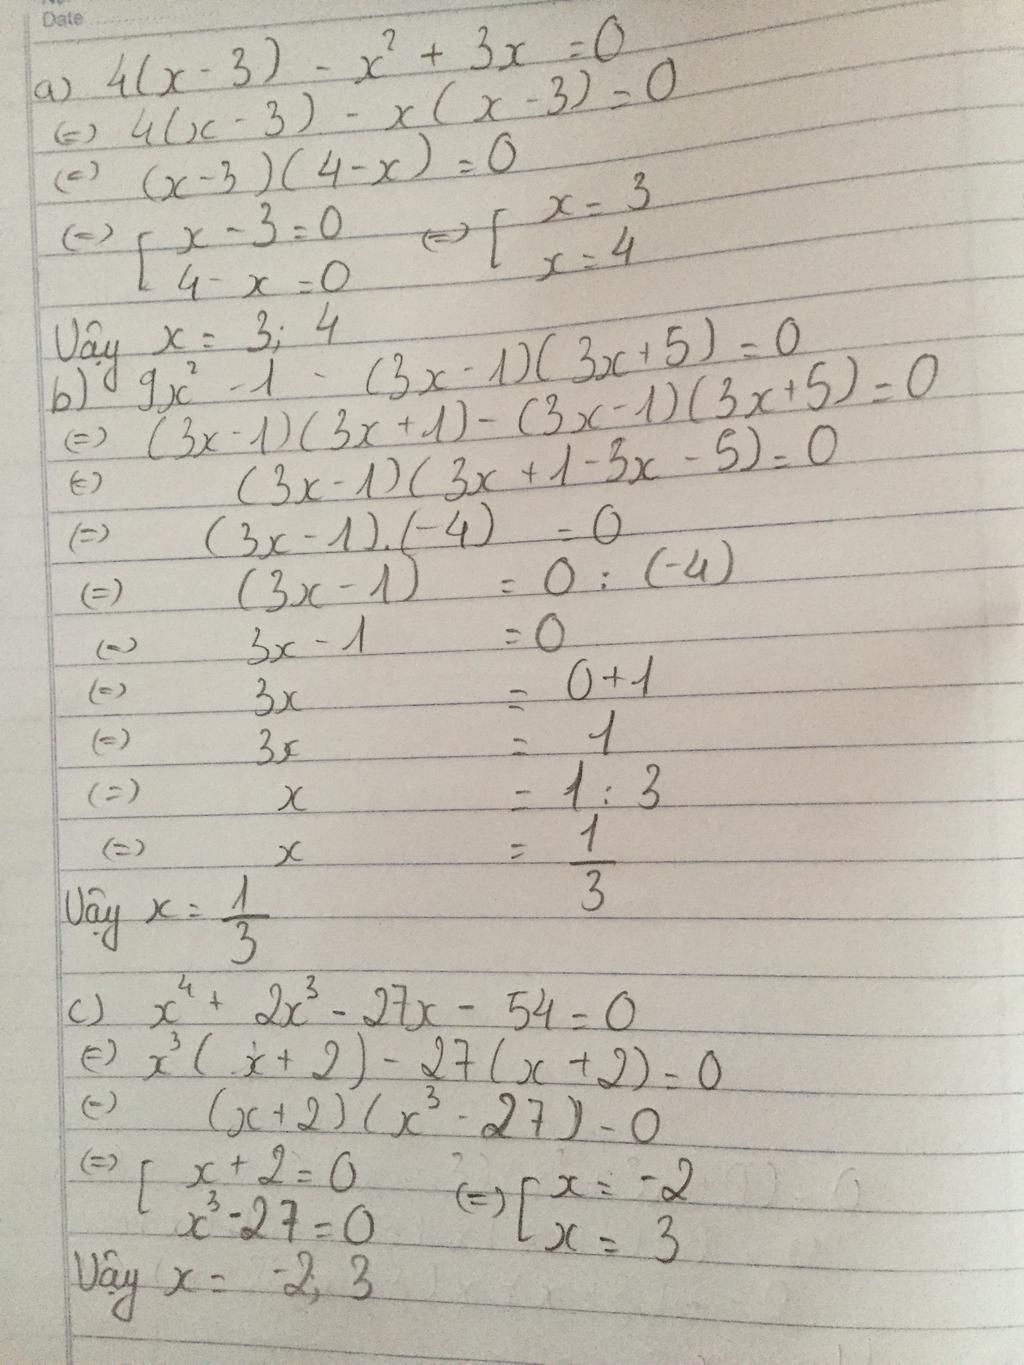 Date
a) 4(x - 3) - x² + 3x = 0
(=) 4(x - 3) - x(x - 3) = 0
(=) (x - 3)(4 - x) = 0
(=) [ x - 3 = 0 (=) [ x = 3
4 - x = 0 x = 4
Vậy x = 3; 4
b) 9x² - 1 - (3x - 1)(3x + 5) = 0
(=) (3x - 1)(3x + 1) - (3x - 1)(3x + 5) = 0
(=) (3x - 1)(3x + 1 - 3x - 5) = 0
(=) (3x - 1).(-4) = 0
(=) (3x - 1) = 0 : (-4)
(=) 3x - 1 = 0
(=) 3x = 0 + 1
(=) 3x = 1
(=) x = 1 : 3
(=) x = 1/3
Vậy x = 1/3
c) x⁴ + 2x³ - 27x - 54 = 0
(=) x³(x + 2) - 27(x + 2) = 0
(=) (x + 2)(x³ - 27) = 0
(=) [ x + 2 = 0 (=) [ x = -2
x³ - 27 = 0 x = 3
Vậy x = -2; 3